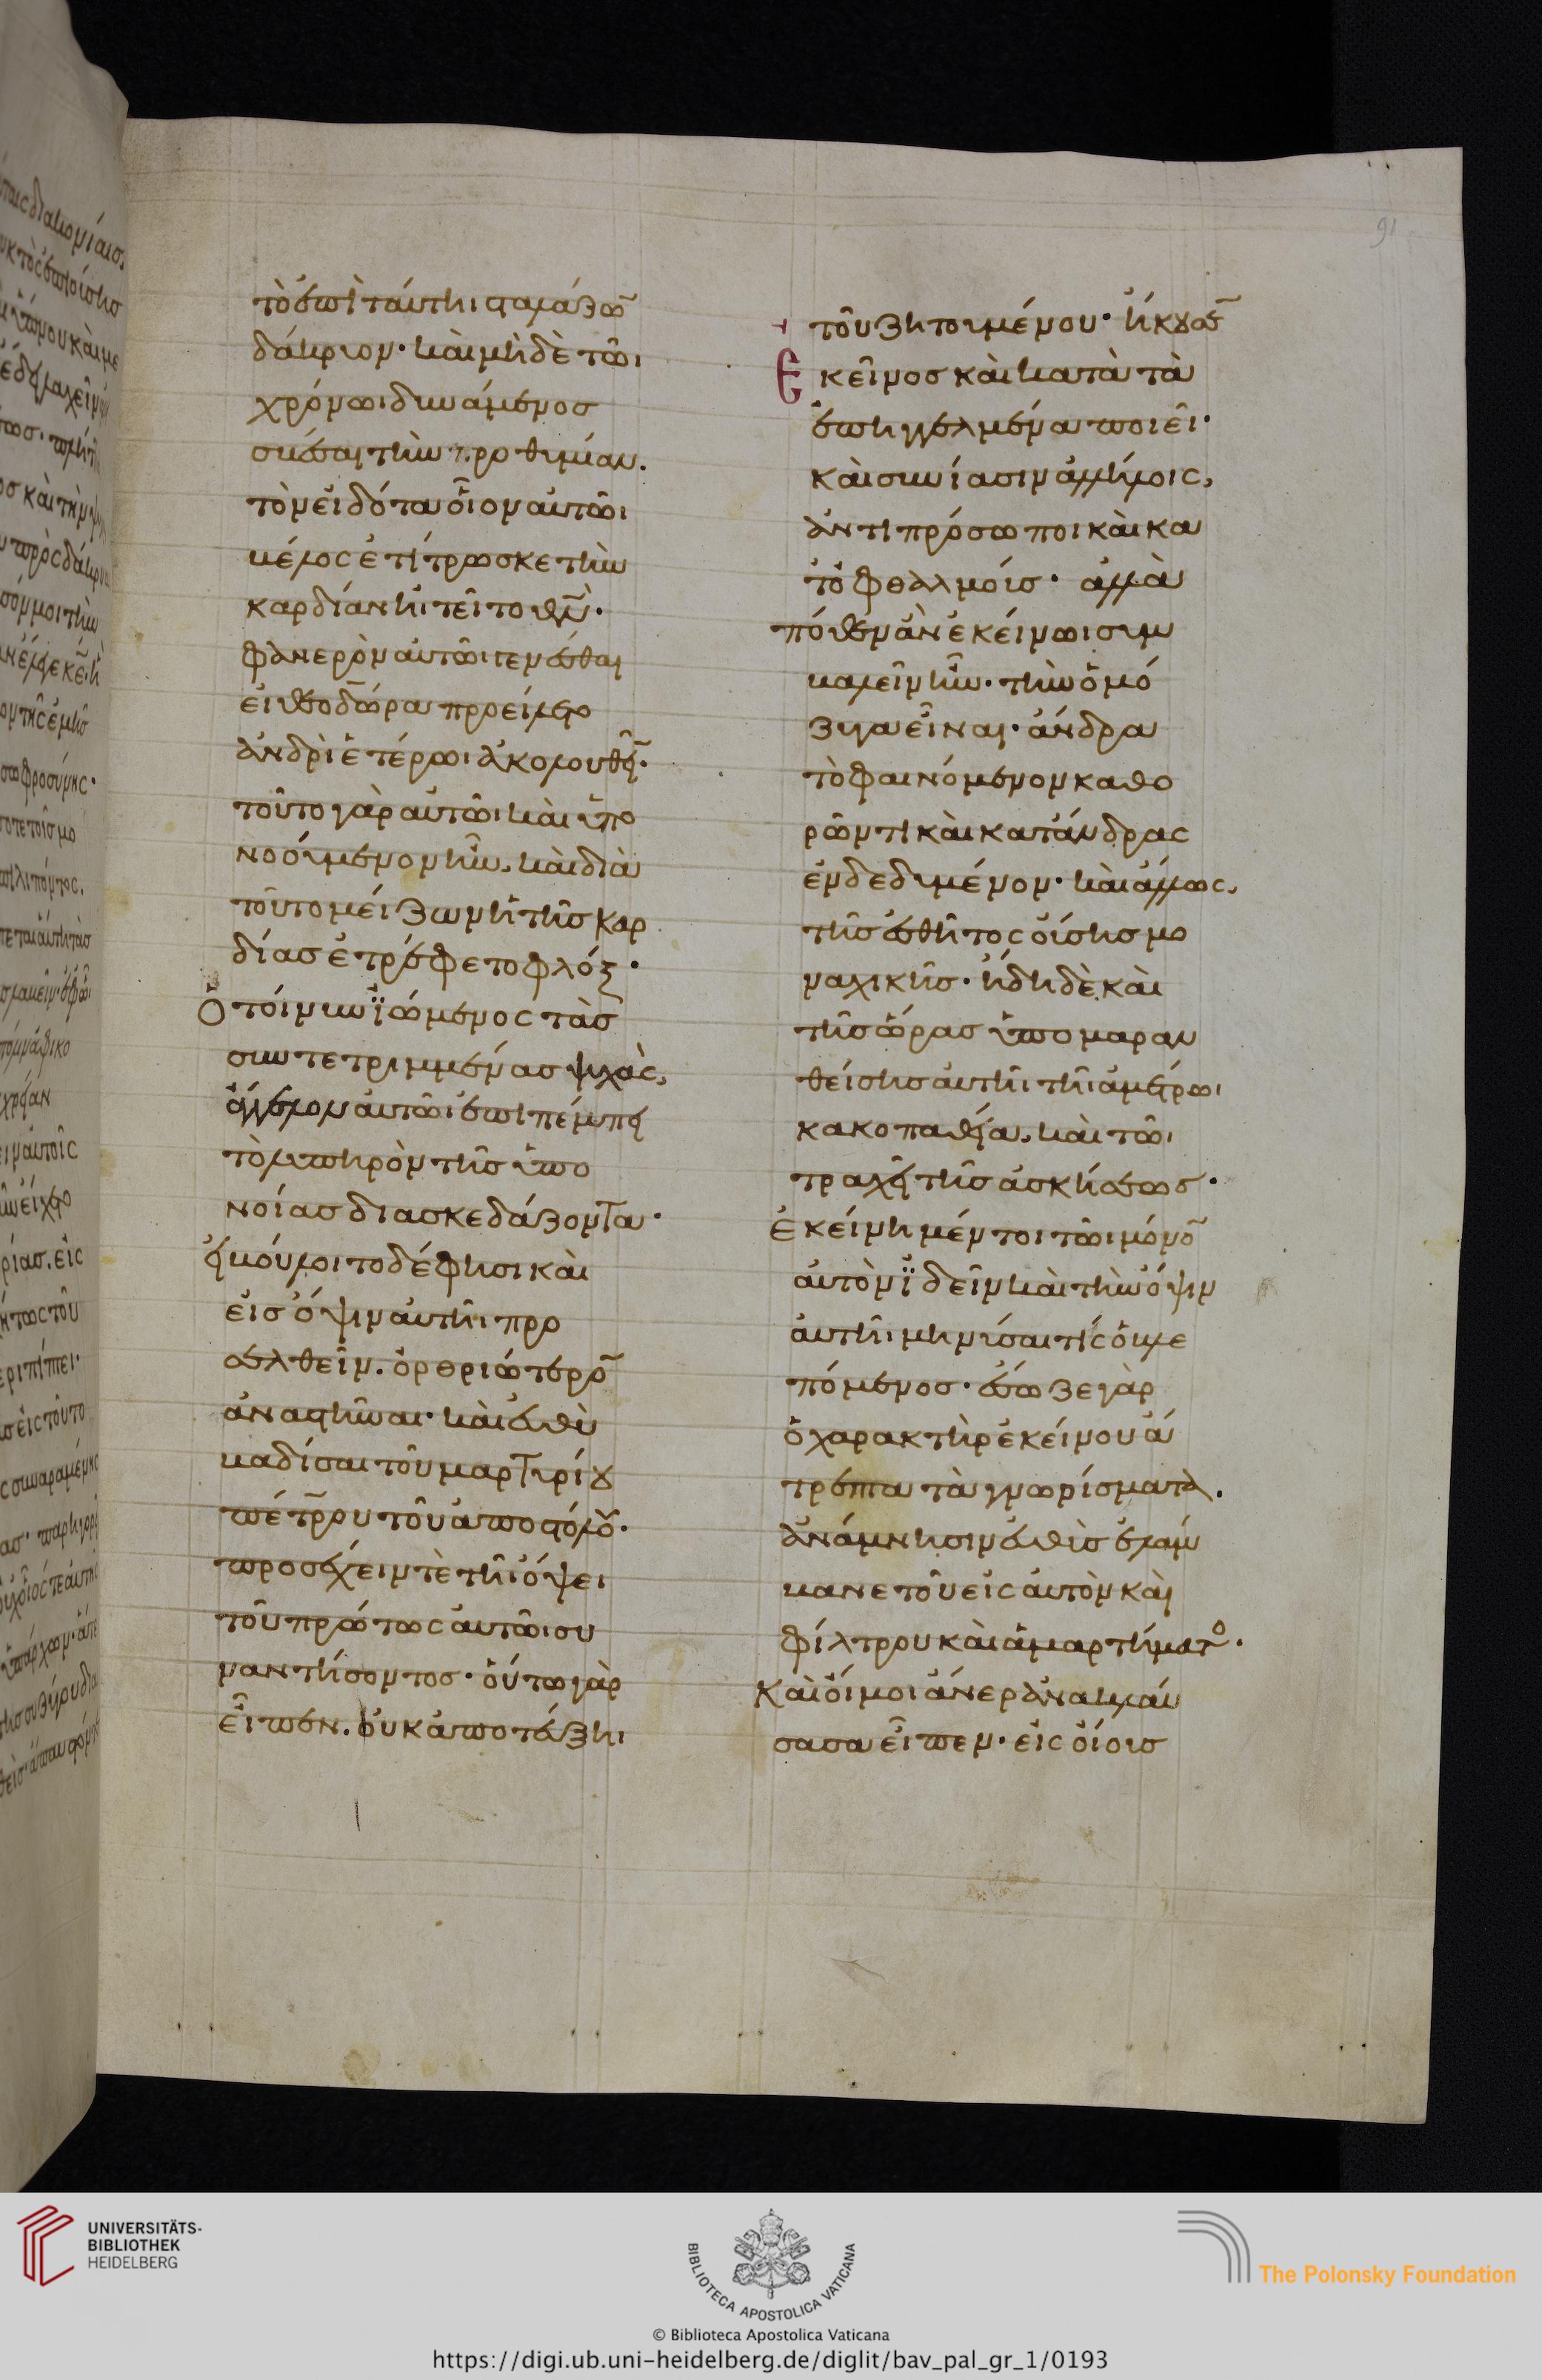 91
τὸ ἐπὶ ταύτηι σταλάζω̅
δάκρυον· καὶ μὴ δὲ τῶι
χρόνωι δυνάμενος
σβέσαι τὴν προθυμίαν.
τὸν εἰδότα οἷον αὐτῶι
βέλος ἐτίτρωσκε τὴν
καρδίαν ἠτεῖτο θ̅ν̅·
φανερὸν αὐτῶι γενέσθαι
εἰ θεοδώρα προείλετο
ἀνδρὶ ἑτέρωι ἀκολουθεῖ̅·
τοῦτο γὰρ αὐτῶι καὶ ὑπο
νοούμενον ἦν, καὶ διὰ
τοῦτο μείζων ἡ τῆς καρ
δίας ἐτρέφετο φλόξ·
Ὁ τοίνυν ϊώμενος τὰς
συντετριμμένας ψυχὰς,
ἄγγελον αὐτῶι ἐπιπέμπει
τὸ λυπηρὸν τῆς ὑπο
νοίας διασκεδάζοντα·
εἰ βούλοιτο δέ φησι καὶ
εἰς ὄψιν αὐτῆι προ
ελθεῖν. ὀρθριώτερο̅
ἀναστῆναι· καὶ εὐθὺ
βαδίσαι τοῦ μαρτυρίου
πέτρου τοῦ ἀποστόλου·
προσέχειν τὲ τῆι ὄψει
τοῦ πρώτως αὐτῶι συ
ναντήσοντος· οὕτω γὰρ
εἶπεν. οὐκ ἀποτεύξηι
τοῦ ζητουμένου· ἤκουσ̅
Ἐκεῖνος καὶ κατὰ τὰ
ἐπηγγελμένα ποιεῖ·
καὶ συνίασιν ἀλλήλοις,
ἀντιπρόσωποι καὶ κα
τοφθαλμοίς· ἀλλὰ
πόθεν ἂν ἐκείνωι συμ
βαλεῖν ἦν· τὴν ὁμό
ζυγα εἶναι· ἄνδρα
τὸ φαινόμενον καθο
ρῶντι καὶ κατάνδρας
ἐνδεδυμένον· καὶ ἄλλως,
τῆς ἐσθῆτος οὔσης μο
ναχικῆς· ἤδη δὲ καὶ
τῆς ὥρας ὑπομαραν
θείσης αὐτῆι τῆι ἀμέτρωι
κακοπαθεία, καὶ τῶι
τραχεῖ τῆς ἀσκήσεως·
Ἐκείνη μέντοι τῶι μόνο̅
αὐτὸν ϊδεῖν καὶ τὴν ὄψιν
αὐτῆι μηνῦσαι τίς ὁ βλε
πόμενος· ἔσωζε γὰρ
ὁ χαρακτὴρ ἐκείνου ἄ
τρεπτα τὰ γνωρίσματα.
ἀνάμνησιν εὐθὺς ἐλάμ
βανε τοῦ εἰς αὐτὸν καὶ
φίλτρου καὶ ἁμαρτήματο·
Καὶ οἴμοι ἄνερ ἀνακλαύ
σασα εἶπεν· εἰς οἵοις
UNIVERSITÄTS-
BIBLIOTHEK
HEIDELBERG
BIBLIOTECA APOSTOLICA VATICANA
The Polonsky Foundation
© Biblioteca Apostolica Vaticana
https://digi.ub.uni-heidelberg.de/diglit/bav_pal_gr_1/0193